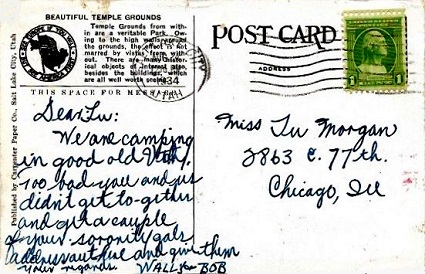 BEAUTIFUL TEMPLE GROUNDS
Temple Grounds from with-
in are a veritable Park. Ow-
ing to the high walls around
the grounds, the effect is not
marred by vistas from with-
out. There are many histor-
ical objects of interest also,
besides the buildings, which
are all well worth seeing.
THIS SPACE FOR MESSAGE
Published by Carpenter Paper Co., Salt Lake City, Utah
POST CARD
ADDRESS
CITY
1934
UTAH
1
1
Dear Lu:
We are camping
in good old Utah.
Too bad you and us
didn't get to-gether
and get a couple
of your sorority gals
addresses and give them
your regards. WALLY &
BOB
Miss Lu Morgan
2863 E. 77th.
Chicago, Ill